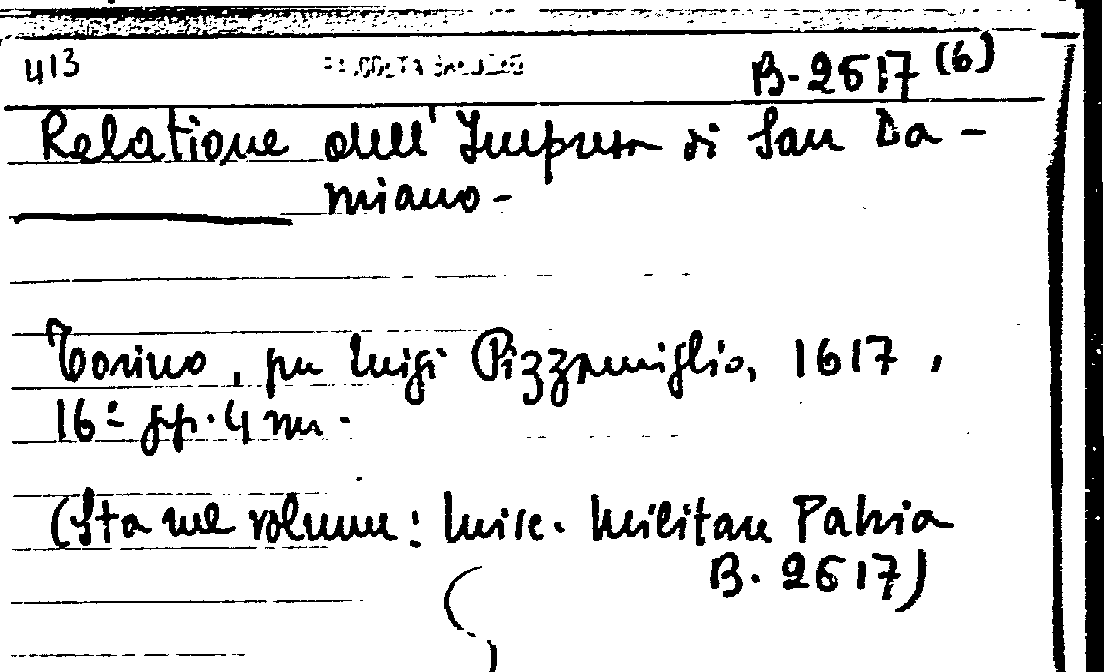 413 RACCOLTA SALUZZO B-2617 (6)
Relatione dell'Impresa di San Da-
miano-
Torino, per Luigi Pizzamiglio, 1617,
16º pp. 4 nn.
(Sta nel volume: Misc. Militare Patria
B. 2617)